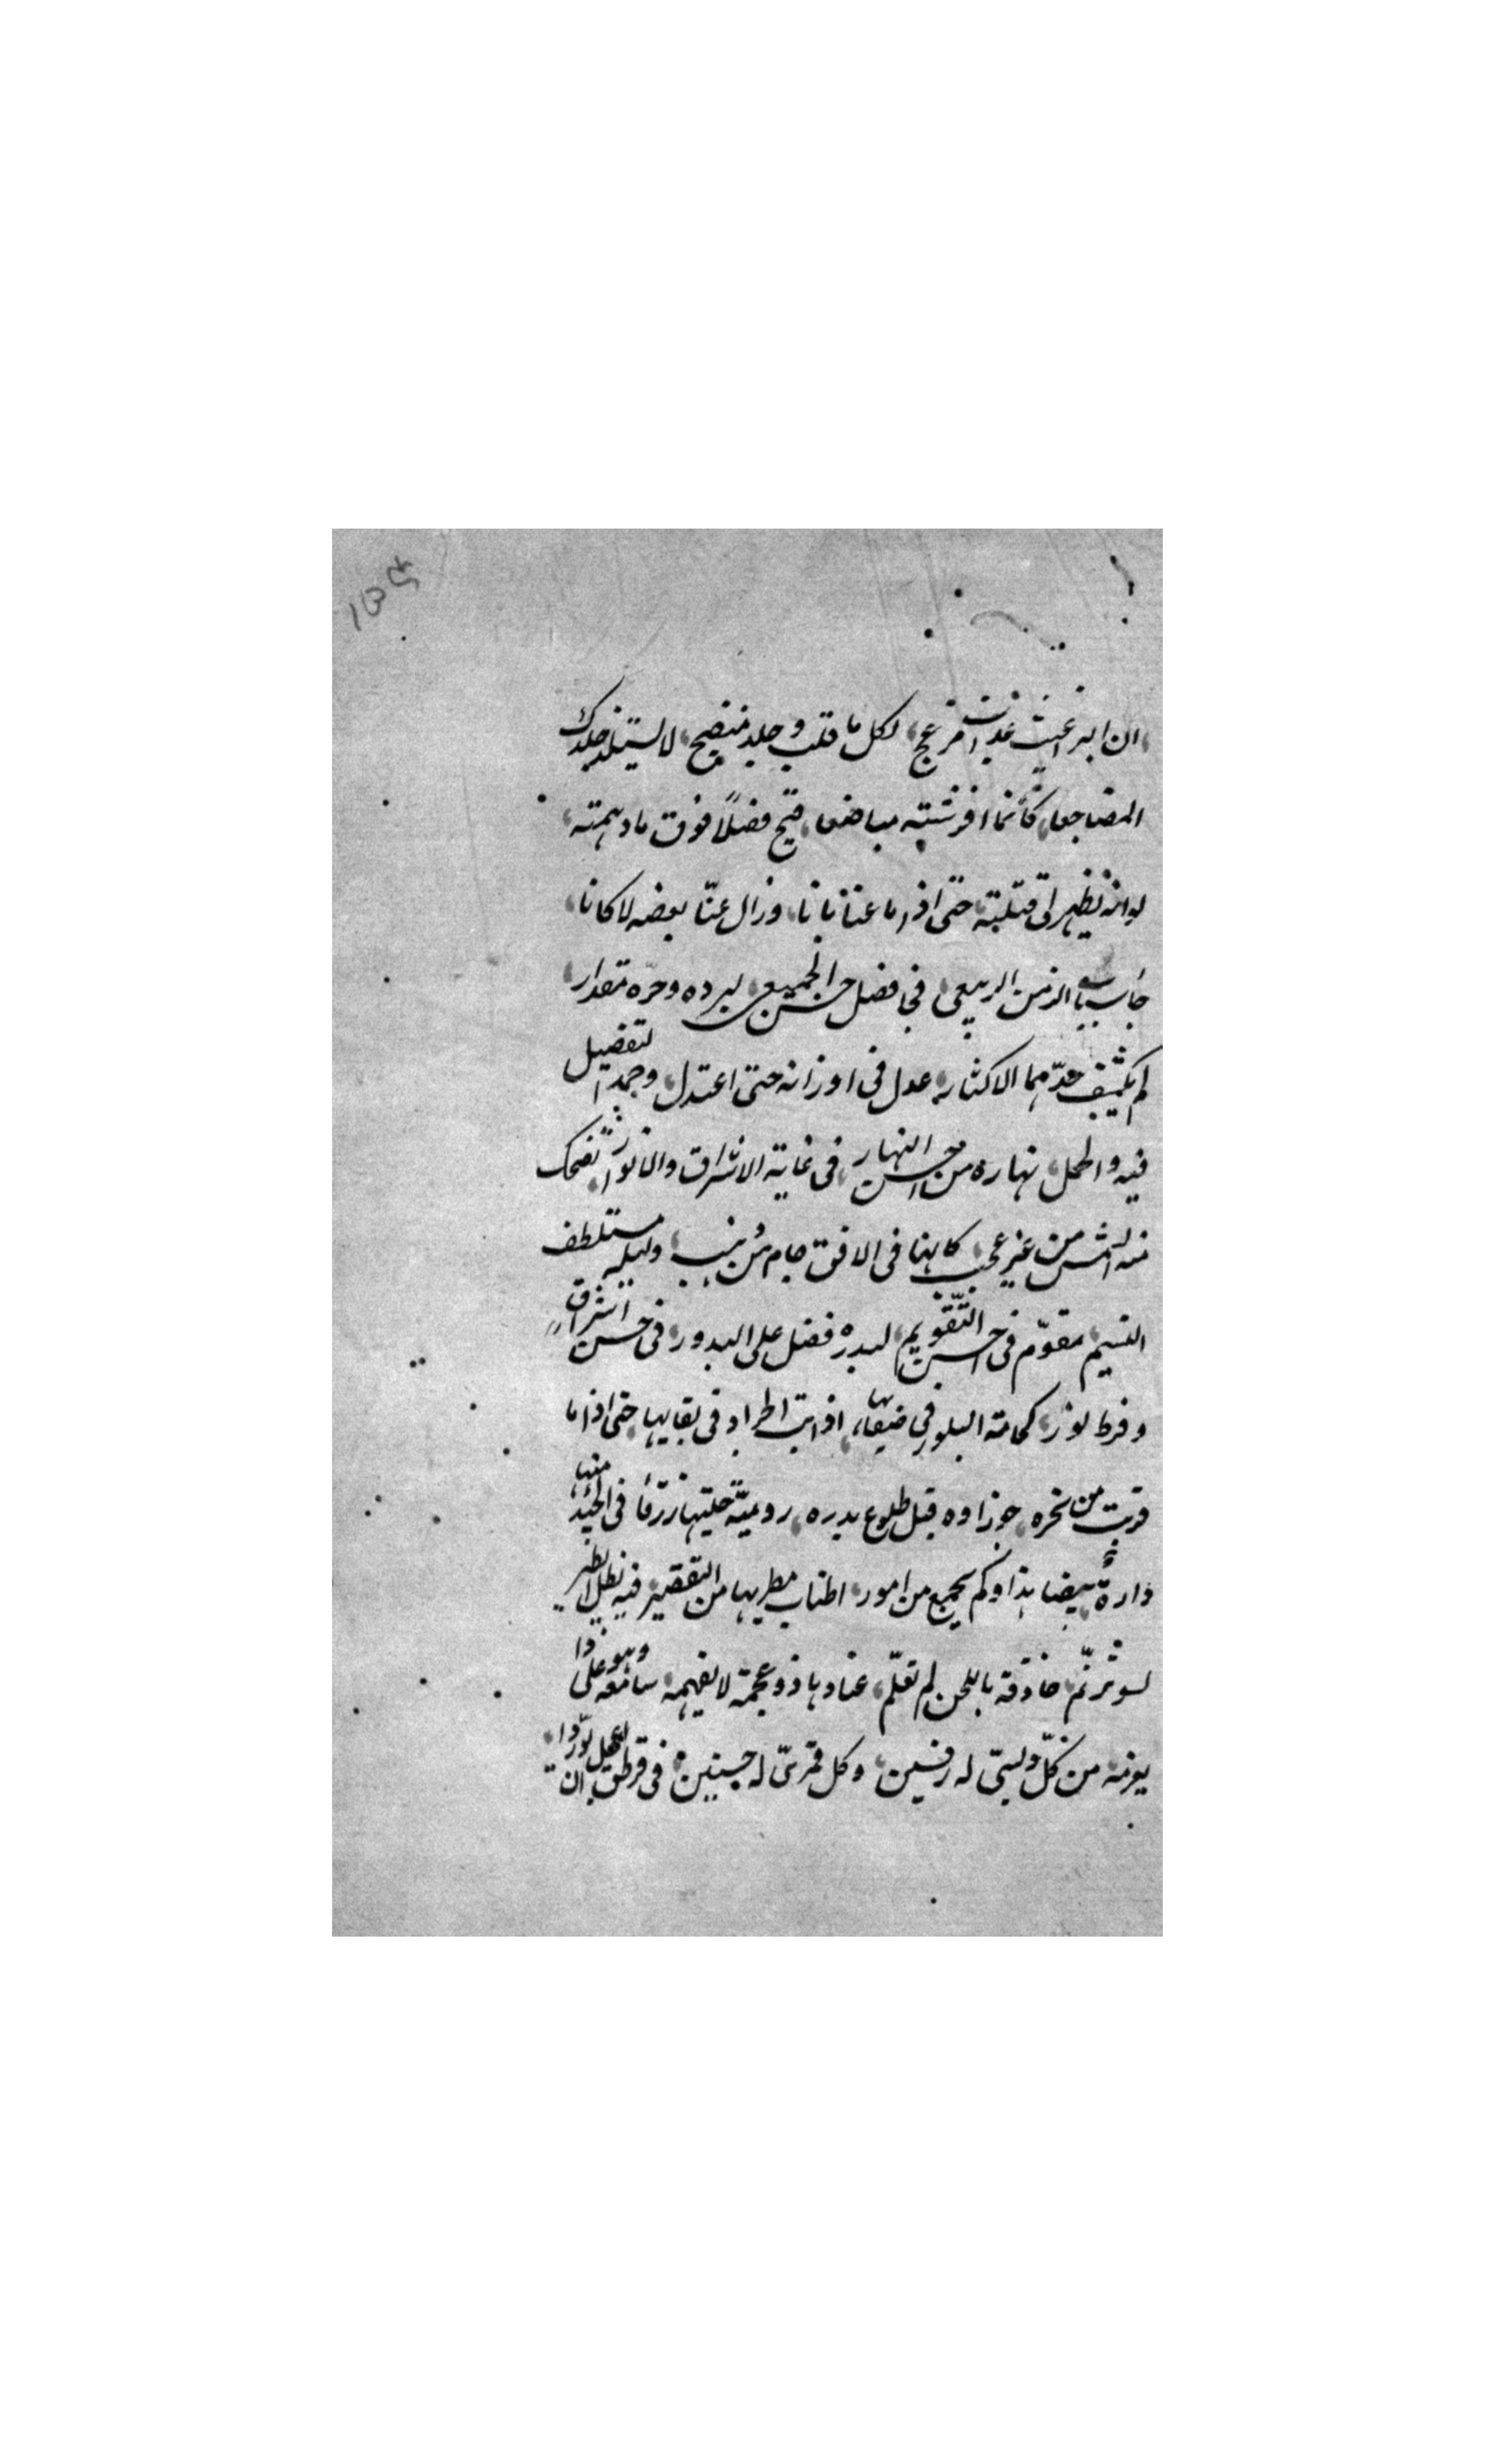 ان البراغيث عذاب مزعج، لكل ما قلب وجلد منضج، لا يستلذ جلدك
المضاجعا، كأنما افرشته مباضعا، قبح فصلا فوق ما ذممته،
لو انه يظهر لى قتلته، حتى اذا ما عنا بانا، وزال عنا بعضه لا كانا،
جاء الزمن الربيعى، فجا فصل حسن الجميع، لبرده وحره مقدار،
لم يكتنف حدهما الاكثار، عدل فى اوزانه حتى اعتدل، وحمد التفضيل
فيه والجمل، نهاره من احسن النهار، فى غاية الاشراق والانوار، تضحك
منه الشمس من غير عجب، كانها فى الافق جام من ذهب، وليله مستلطف
النسيم، مقوم فى احسن التقويم، لبدره فضل على البدور، فى حسن اشراق
وفرط نور، كجامة البلور فى صفائها، اذابت الجراد فى نقابها، حتى اذا ما
قربت من نحره، جوزاوه قبل طلوع بدره، رومية حليتها زرقا، فى الجيد منها
دارة بيضا، هذا وكم يجمع من امور، اطناب مطريها من التقصير، فيه تظل الطير
لسو ترنم، حاذقة باللحن لم تعلم، غناوها ذو عجمة لا يفهمه، سامعه وهو على ذا
يغرمه، من كل دبسى له رنين، وكل قمرى له حنين، فى قرطق اعجل ان توردا